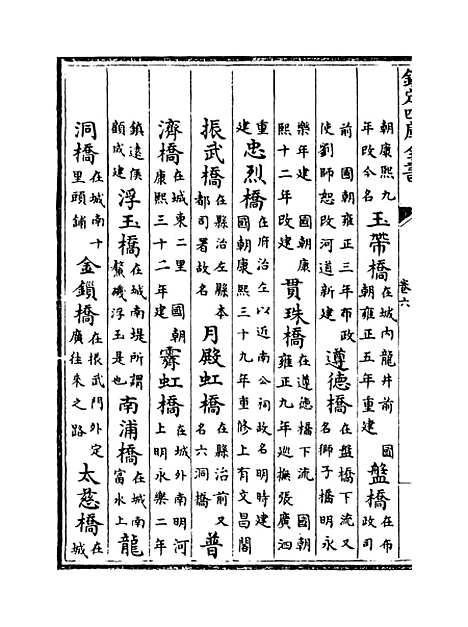 欽定四庫全書
卷六
朝康熙九年改今名玉帶橋在城内龍井前 國朝雍正五年重建 盤橋在布政司
前 國朝雍正三年布政使劉師恕改河道新建 遵德橋在盤橋下流又名獅子橋明永
樂年建 國朝康熙十二年改建 貫珠橋在遵德橋下流 國朝雍正九年巡撫張廣泗
重建忠烈橋在府治左以近南公祠故名明時建國朝康熙三十九年重修上有文昌閣
振武橋在縣治左縣本都司署故名 月殿虹橋在縣治前又名六洞橋 普
濟橋在城東二里 國朝康熙三十二年建 霽虹橋在城外南明河上明永樂二年
鎮遠侯顧成建 浮玉橋在城南堤所謂鰲磯浮玉是也 南浦橋在城南富水上 龍
洞橋在城南十里頭鋪 金鎖橋在振武門外定廣往來之路 太慈橋在城